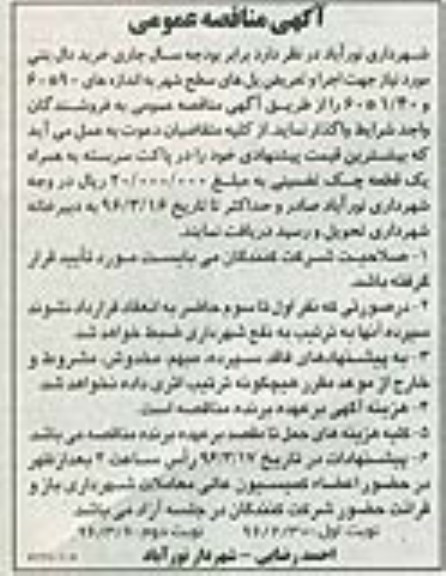 آگهی مناقصه عمومی
شهرداری نورآباد در نظر دارد برابر بودجه سال جاری خرید دال بتنی
مورد نیاز جهت اجرا و تعریض پل های سطح شهر به اندازه های
را از طریق آگهی مناقصه عمومی به فروشندگان
واجد شرایط واگذار نماید. از کلیه متقاضیان دعوت به عمل می آید
که بیشترین قیمت پیشنهادی خود را در پاکت سربسته به همراه
یک قطعه چک تضمینی به مبلغ ۲۰/۰۰۰/۰۰۰ ریال در وجه
شهرداری نورآباد صادر و حداکثر تا تاریخ ۹۶/۳/۱۶ به دبیرخانه
شهرداری تحویل و رسید دریافت نمایند.
۱- صلاحیت شرکت کنندگان می بایست مورد تأیید قرار
گرفته باشد.
۲- درصورتی که نفر اول تا سوم حاضر به انعقاد قرارداد نشوند
سپرده آنها به ترتیب به نفع شهرداری ضبط خواهد شد.
۳- به پیشنهادهای فاقد سپرده، مبهم، مخدوش، مشروط و
خارج از موعد مقرر هیچگونه ترتیب اثری داده نخواهد شد.
۴- هزینه آگهی بر عهده برنده مناقصه است.
۵- کلیه هزینه های حمل تا مقصد بر عهده برنده مناقصه می باشد.
۶- پیشنهادات در تاریخ ۹۶/۳/۱۷ رأس ساعت ۲ بعدازظهر
در حضور اعضاء کمیسیون عالی معاملات شهرداری باز و
قرائت حضور شرکت کنندگان در جلسه آزاد می باشد.
نوبت اول: نوبت دوم:
احمد رضایی - شهردار نورآباد